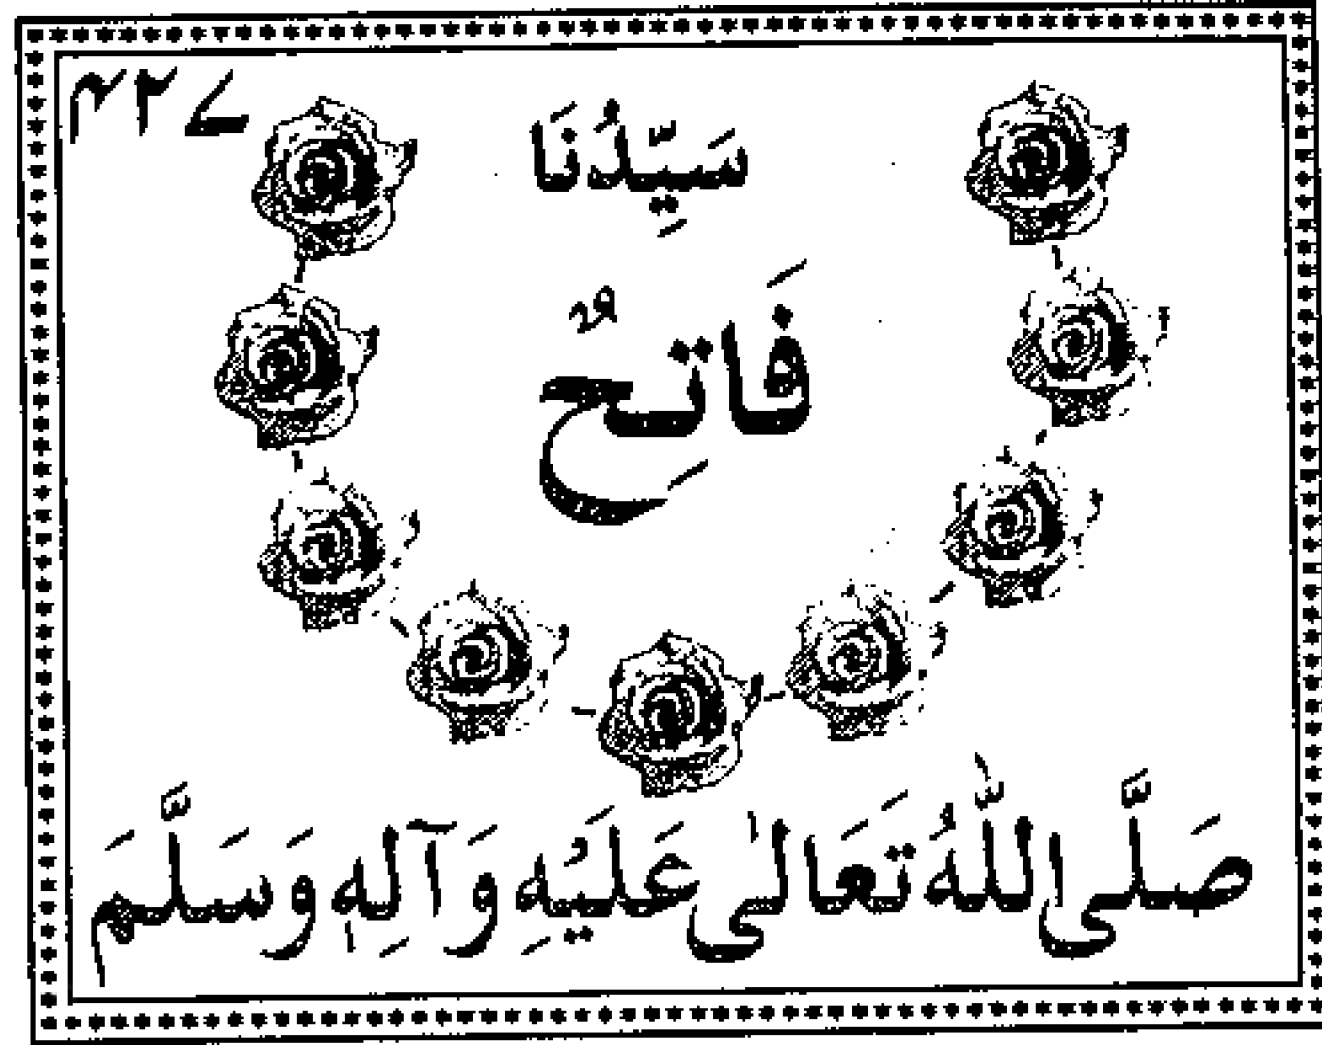 ۳۲۷
سَيِّدُنَا
فَاتِحٌ
صَلَّى اللّٰهُ تَعَالىٰ عَلَيْهِ وَآلِهٖ وَسَلَّمَ